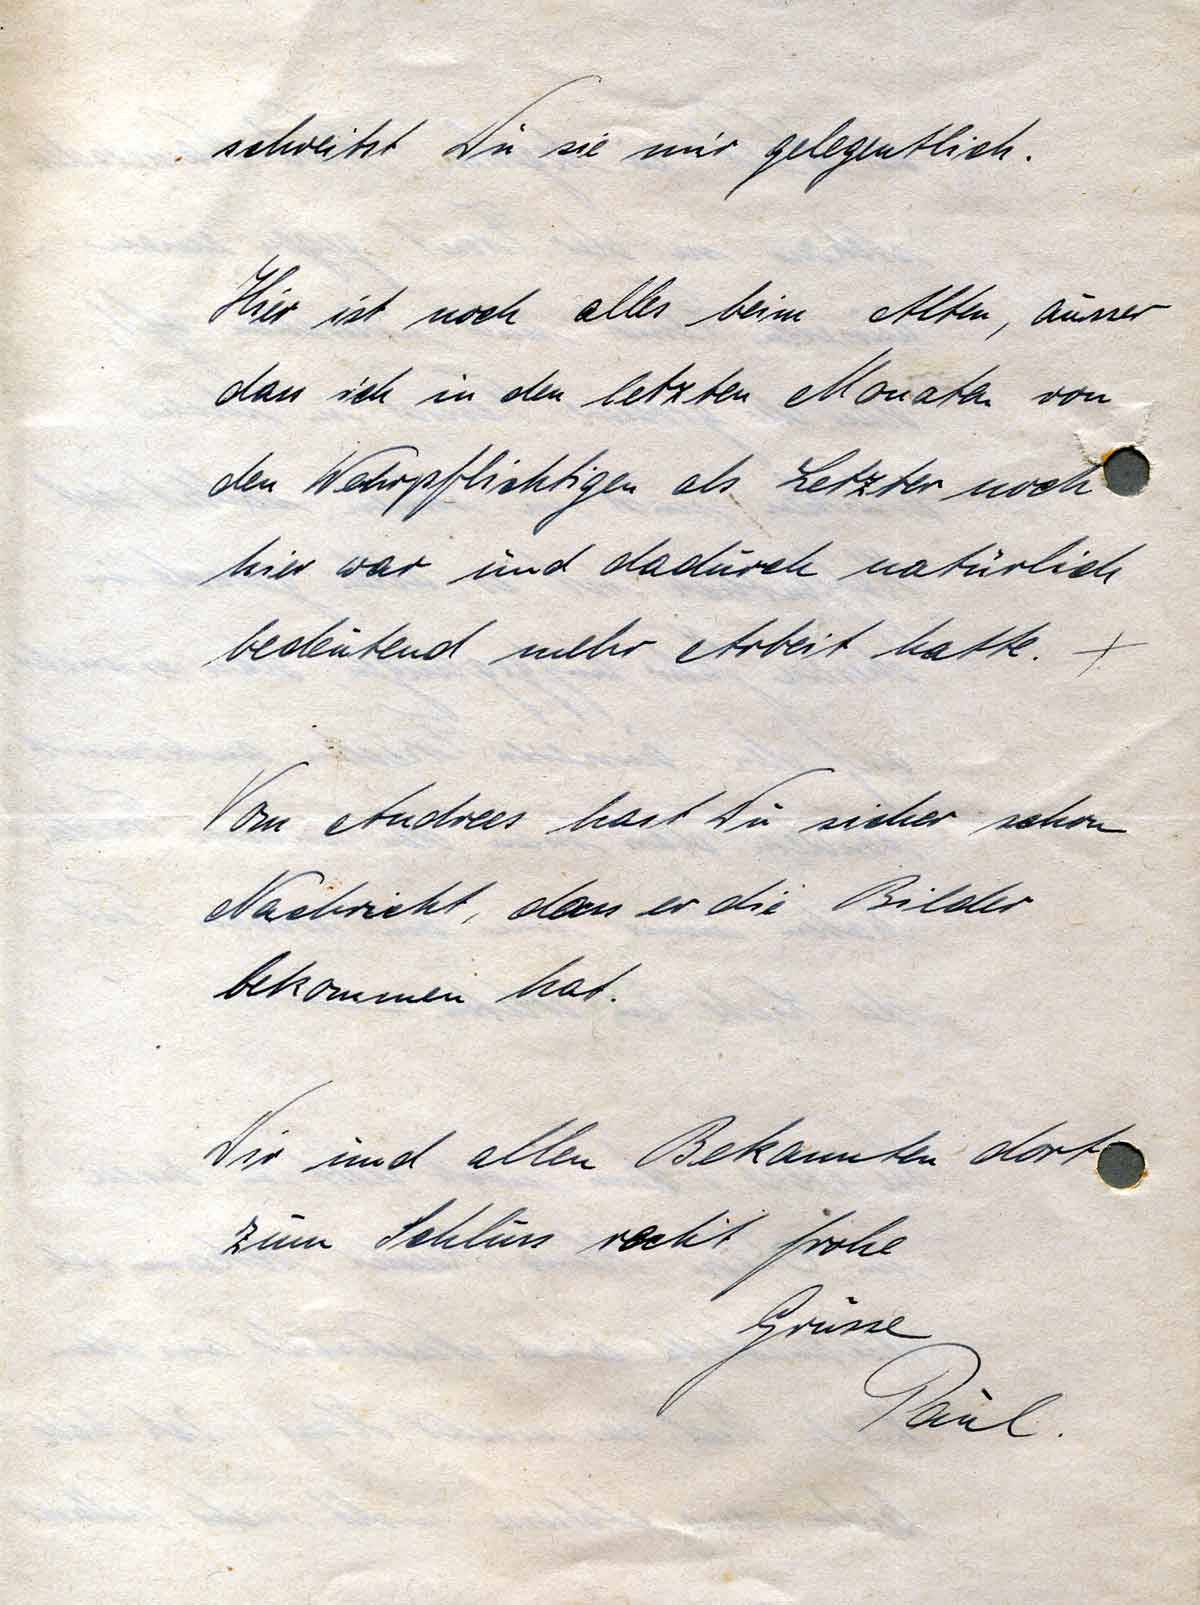 schreibst Du sie mir gelegentlich.
Hier ist noch alles beim Alten, ausser
dass ich in den letzten Monaten von
den Wehrpflichtigen als Letzter noch
hier war und dadurch natürlich
bedeutend mehr Arbeit hatte. +
Vom Andrees hast Du sicher schon
Nachricht, dass er die Bilder
bekommen hat.
Dir und allen Bekannten dort
zum Schluss recht frohe
Grüsse
Paul.